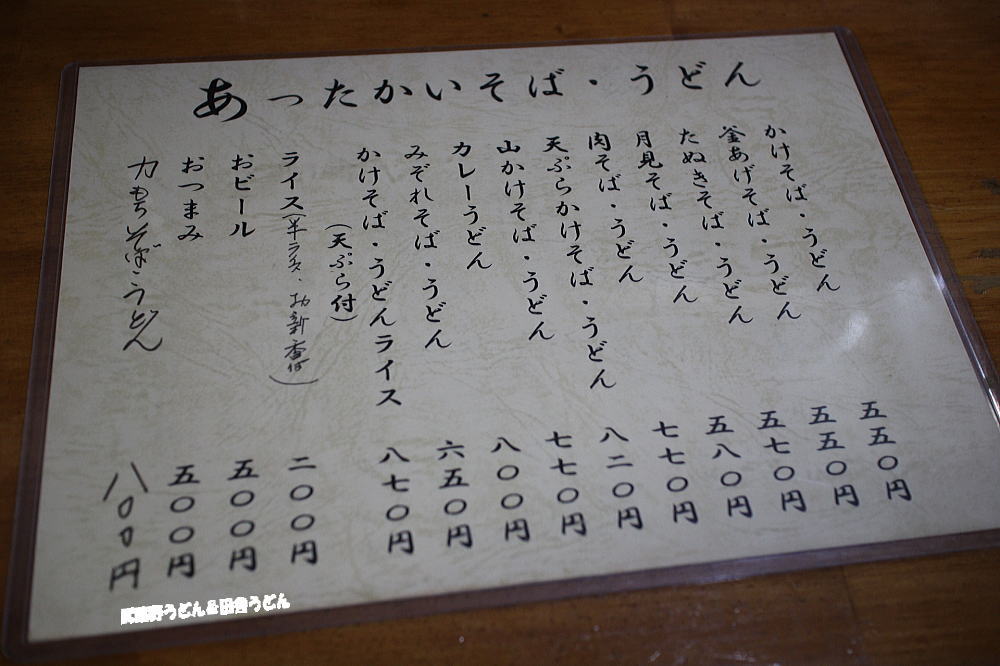 あったかいそば・うどん
かけそば・うどん 五五〇円
釜あげそば・うどん 五五〇円
たぬきそば・うどん 五七〇円
月見そば・うどん 五八〇円
肉そば・うどん 七七〇円
天ぷらかけそば・うどん 八二〇円
山かけそば・うどん 七七〇円
カレーうどん 八〇〇円
みぞれそば・うどん 六五〇円
かけそば・うどんライス 八七〇円
(天ぷら付)
ライス(半ライス・お新香付) 二〇〇円
おビール 五〇〇円
おつまみ 五〇〇円
力もちそば・うどん 八〇〇円
武蔵野うどん&田舎うどん